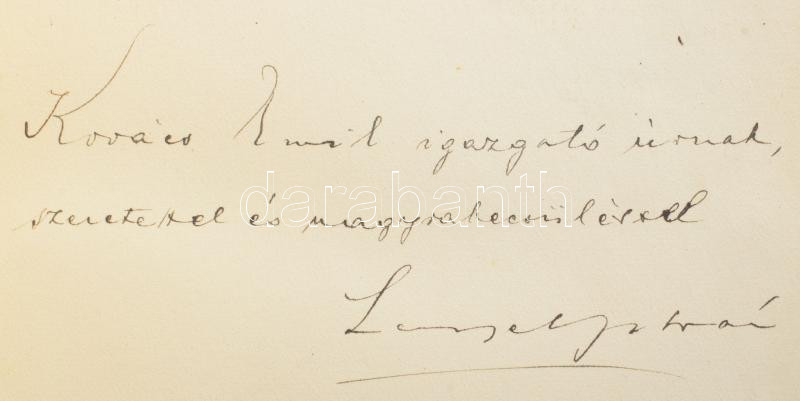 Kovács Emil igazgató úrnak,
szeretettel és nagyrabecsüléssel
darabanth